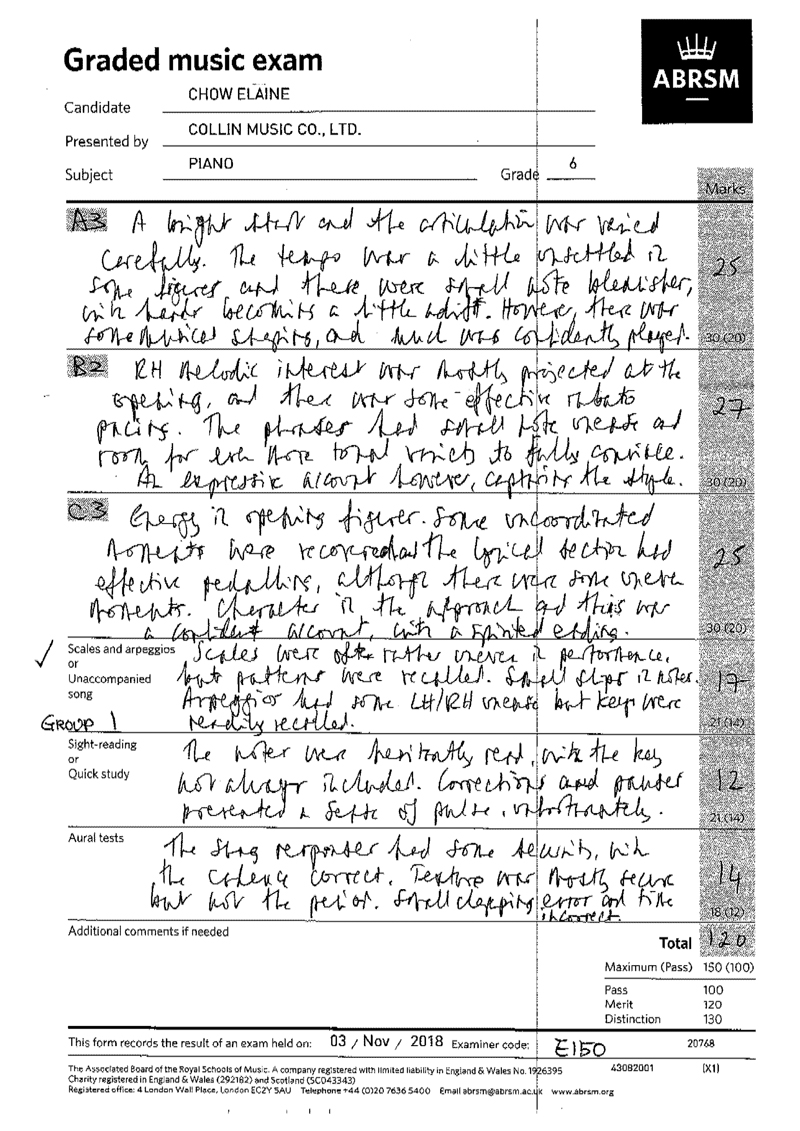 Graded music exam
ABRSM
Candidate CHOW ELAINE
Presented by COLLIN MUSIC CO., LTD.
Subject PIANO Grade 6
Marks
A3 A bright start and the articulation was varied
carefully. The tempo was a little unsettled in
some figures and there were small note blemishes,
with hands becoming a little adrift. However, there was
some musical shaping, and much was confidently played.
25
30 (20)
B2 RH melodic interest was mostly projected at the
opening, and there was some effective rubato
pacing. The phrases had small note unease and
room for even more tonal variety to fully convince.
An expressive account however, capturing the style.
27
30 (20)
C3 Energy in opening figures. Some uncoordinated
moments were recovered and the lyrical section had
effective pedalling, although there were some uneven
moments. Character in the approach and this was
a confident account, with a spirited ending.
25
30 (20)
✓ Scales and arpeggios
or
Unaccompanied
song
GROUP 1
Scales were often rather uneven in performance,
but patterns were recalled. Small slips in notes.
Arpeggios had some LH/RH unease but keys were
readily recalled.
17
21 (14)
Sight-reading
or
Quick study
The notes were hesitantly read, with the key
not always included. Corrections and pauses
prevented a sense of pulse, unfortunately.
12
21 (14)
Aural tests
The sung responses had some security, with
the cadence correct. Texture was mostly secure
but not the period. Small clapping error and time
incorrect.
14
18 (12)
Additional comments if needed
Total 120
Maximum (Pass) 150 (100)
Pass 100
Merit 120
Distinction 130
This form records the result of an exam held on: 03 / Nov / 2018 Examiner code: E150 20768
The Associated Board of the Royal Schools of Music. A company registered with limited liability in England & Wales No. 1926395 43082001 (X1)
Charity registered in England & Wales (292182) and Scotland (SC043343)
Registered office: 4 London Wall Place, London EC2Y 5AU Telephone +44 (0)20 7636 5400 Email abrsm@abrsm.ac.uk www.abrsm.org